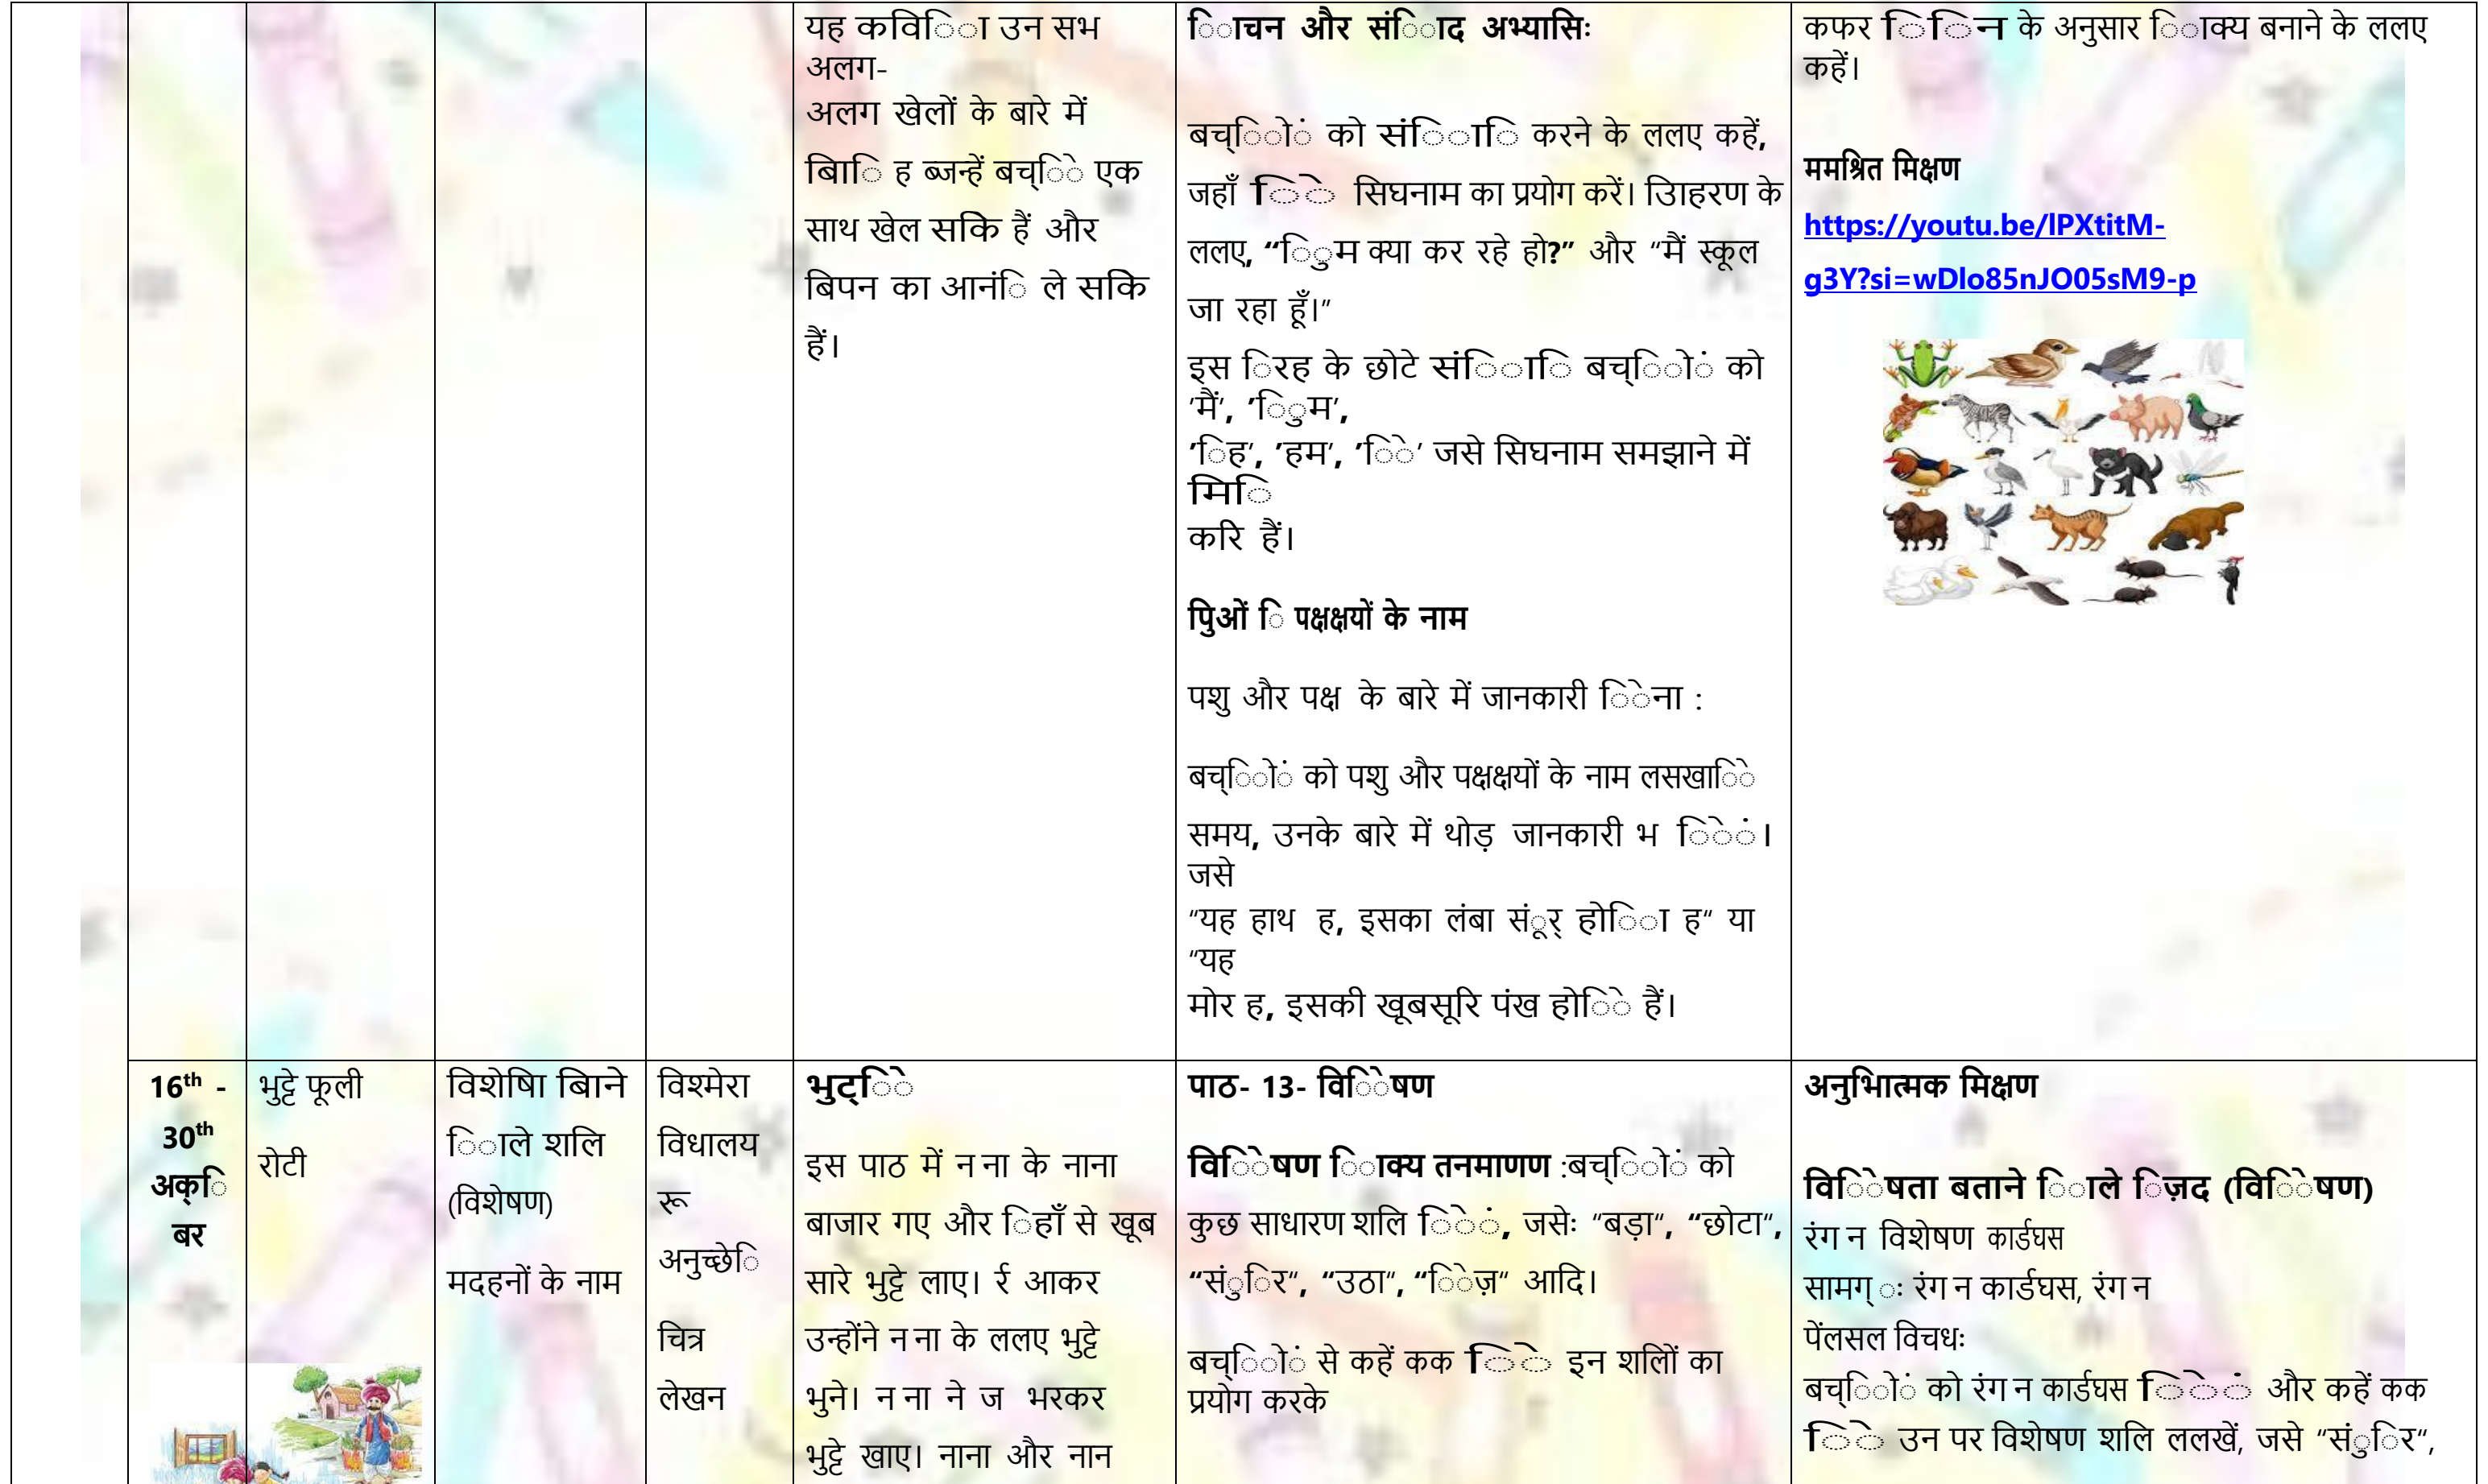 यह कवििंा उन सभ
अलग-
अलग खेलों के बारे में
बिाि ह ब्जन्हें बच्िे एक
साथ खेल सकि हैं और
बिपन का आनंि ले सकि
हैं।
िाचन और संिाद अभ्यासिः
बच्िों को संिाि करने के ललए कहें,
जहाँ िे सिघनाम का प्रयोग करें। उिाहरण के
ललए, “िुम क्या कर रहे हो?” और “मैं स्कूल
जा रहा हूँ।”
इस िरह के छोटे संिाि बच्िों को
'मैं', 'िुम',
'िह', 'हम', 'िे' जसे सिघनाम समझाने में
मिि
करि हैं।
पिुओं ि पक्षक्षयों के नाम
पशु और पक्ष के बारे में जानकारी िेना :
बच्िों को पशु और पक्षक्षयों के नाम लसखािे
समय, उनके बारे में थोड़ जानकारी भ िें।
जसे
“यह हाथ ह, इसका लंबा संूर् होिा ह“ या
“यह
मोर ह, इसकी खूबसूरि पंख होिे हैं।
कफर ििन के अनुसार िाक्य बनाने के ललए
कहें।
ममश्रित मिक्षण
https://youtu.be/lPXtitM-
g3Y?si=wDlo85nJO05sM9-p
16th -
30th
अक्ि
बर
भुट्टे फूली
रोटी
विशेषिा बिाने
िाले शलि
(विशेषण)
मदहनों के नाम
विश्मेरा
विधालय
रू
अनुच्छेि
चित्र
लेखन
भुट्िे
इस पाठ में न ना के नाना
बाजार गए और िहाँ से खूब
सारे भुट्टे लाए। र्र आकर
उन्होंने न ना के ललए भुट्टे
भुने। न ना ने ज भरकर
भुट्टे खाए। नाना और नान
पाठ- 13- वििेषण
वििेषण िाक्य तनमाणण :बच्िों को
कुछ साधारण शलि िें, जसेः “बड़ा“, “छोटा“,
“संुिर“, “उठा“, “िेज़“ आदि।
बच्िों से कहें कक िे इन शलिों का
प्रयोग करके
अनुभिात्मक मिक्षण
वििेषता बताने िाले िज़द (वििेषण)
रंग न विशेषण कार्डघस
सामग् ः रंग न कार्डघस, रंग न
पेंलसल विचधः
बच्िों को रंग न कार्डघस िें और कहें कक
िे उन पर विशेषण शलि ललखें, जसे “संुिर“,